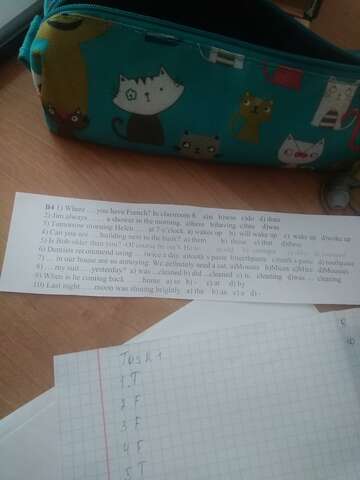 B4 1) Where ... you have French? In classroom 8. a)is b)was c)do d) does
2) Jim always ...... a shower in the morning. a)have b)having c)has d)was
3) Tomorrow morning Helen ..... at 7 o'clock. a) wakes up b) will wake up c) wake up d)woke up
4) Can you see ... building next to the bank? a) them b) those c) that d)these
5) Is Bob older than you? -Of course he isn't. He is
6) Dentists recommend using ... twice a day. a)tooth's paste b)teethpaste c)teeth's paste d) toothpaste
7) ... in our house are so annoying. We definitely need a cat. a)Mouses b)Mices c)Mice d)Mouses
8) ... my suit .... yesterday? a) was ...cleaned b) did ...cleaned c) is ...cleaning d)was ... cleaning
9) When is he coming back ... home a) to b) - c) at d) by
10) Last night ... moon was shining brightly. a) the b) an c) a d) -
Task 1
1. T
2 F
3 F
4 F
5 T